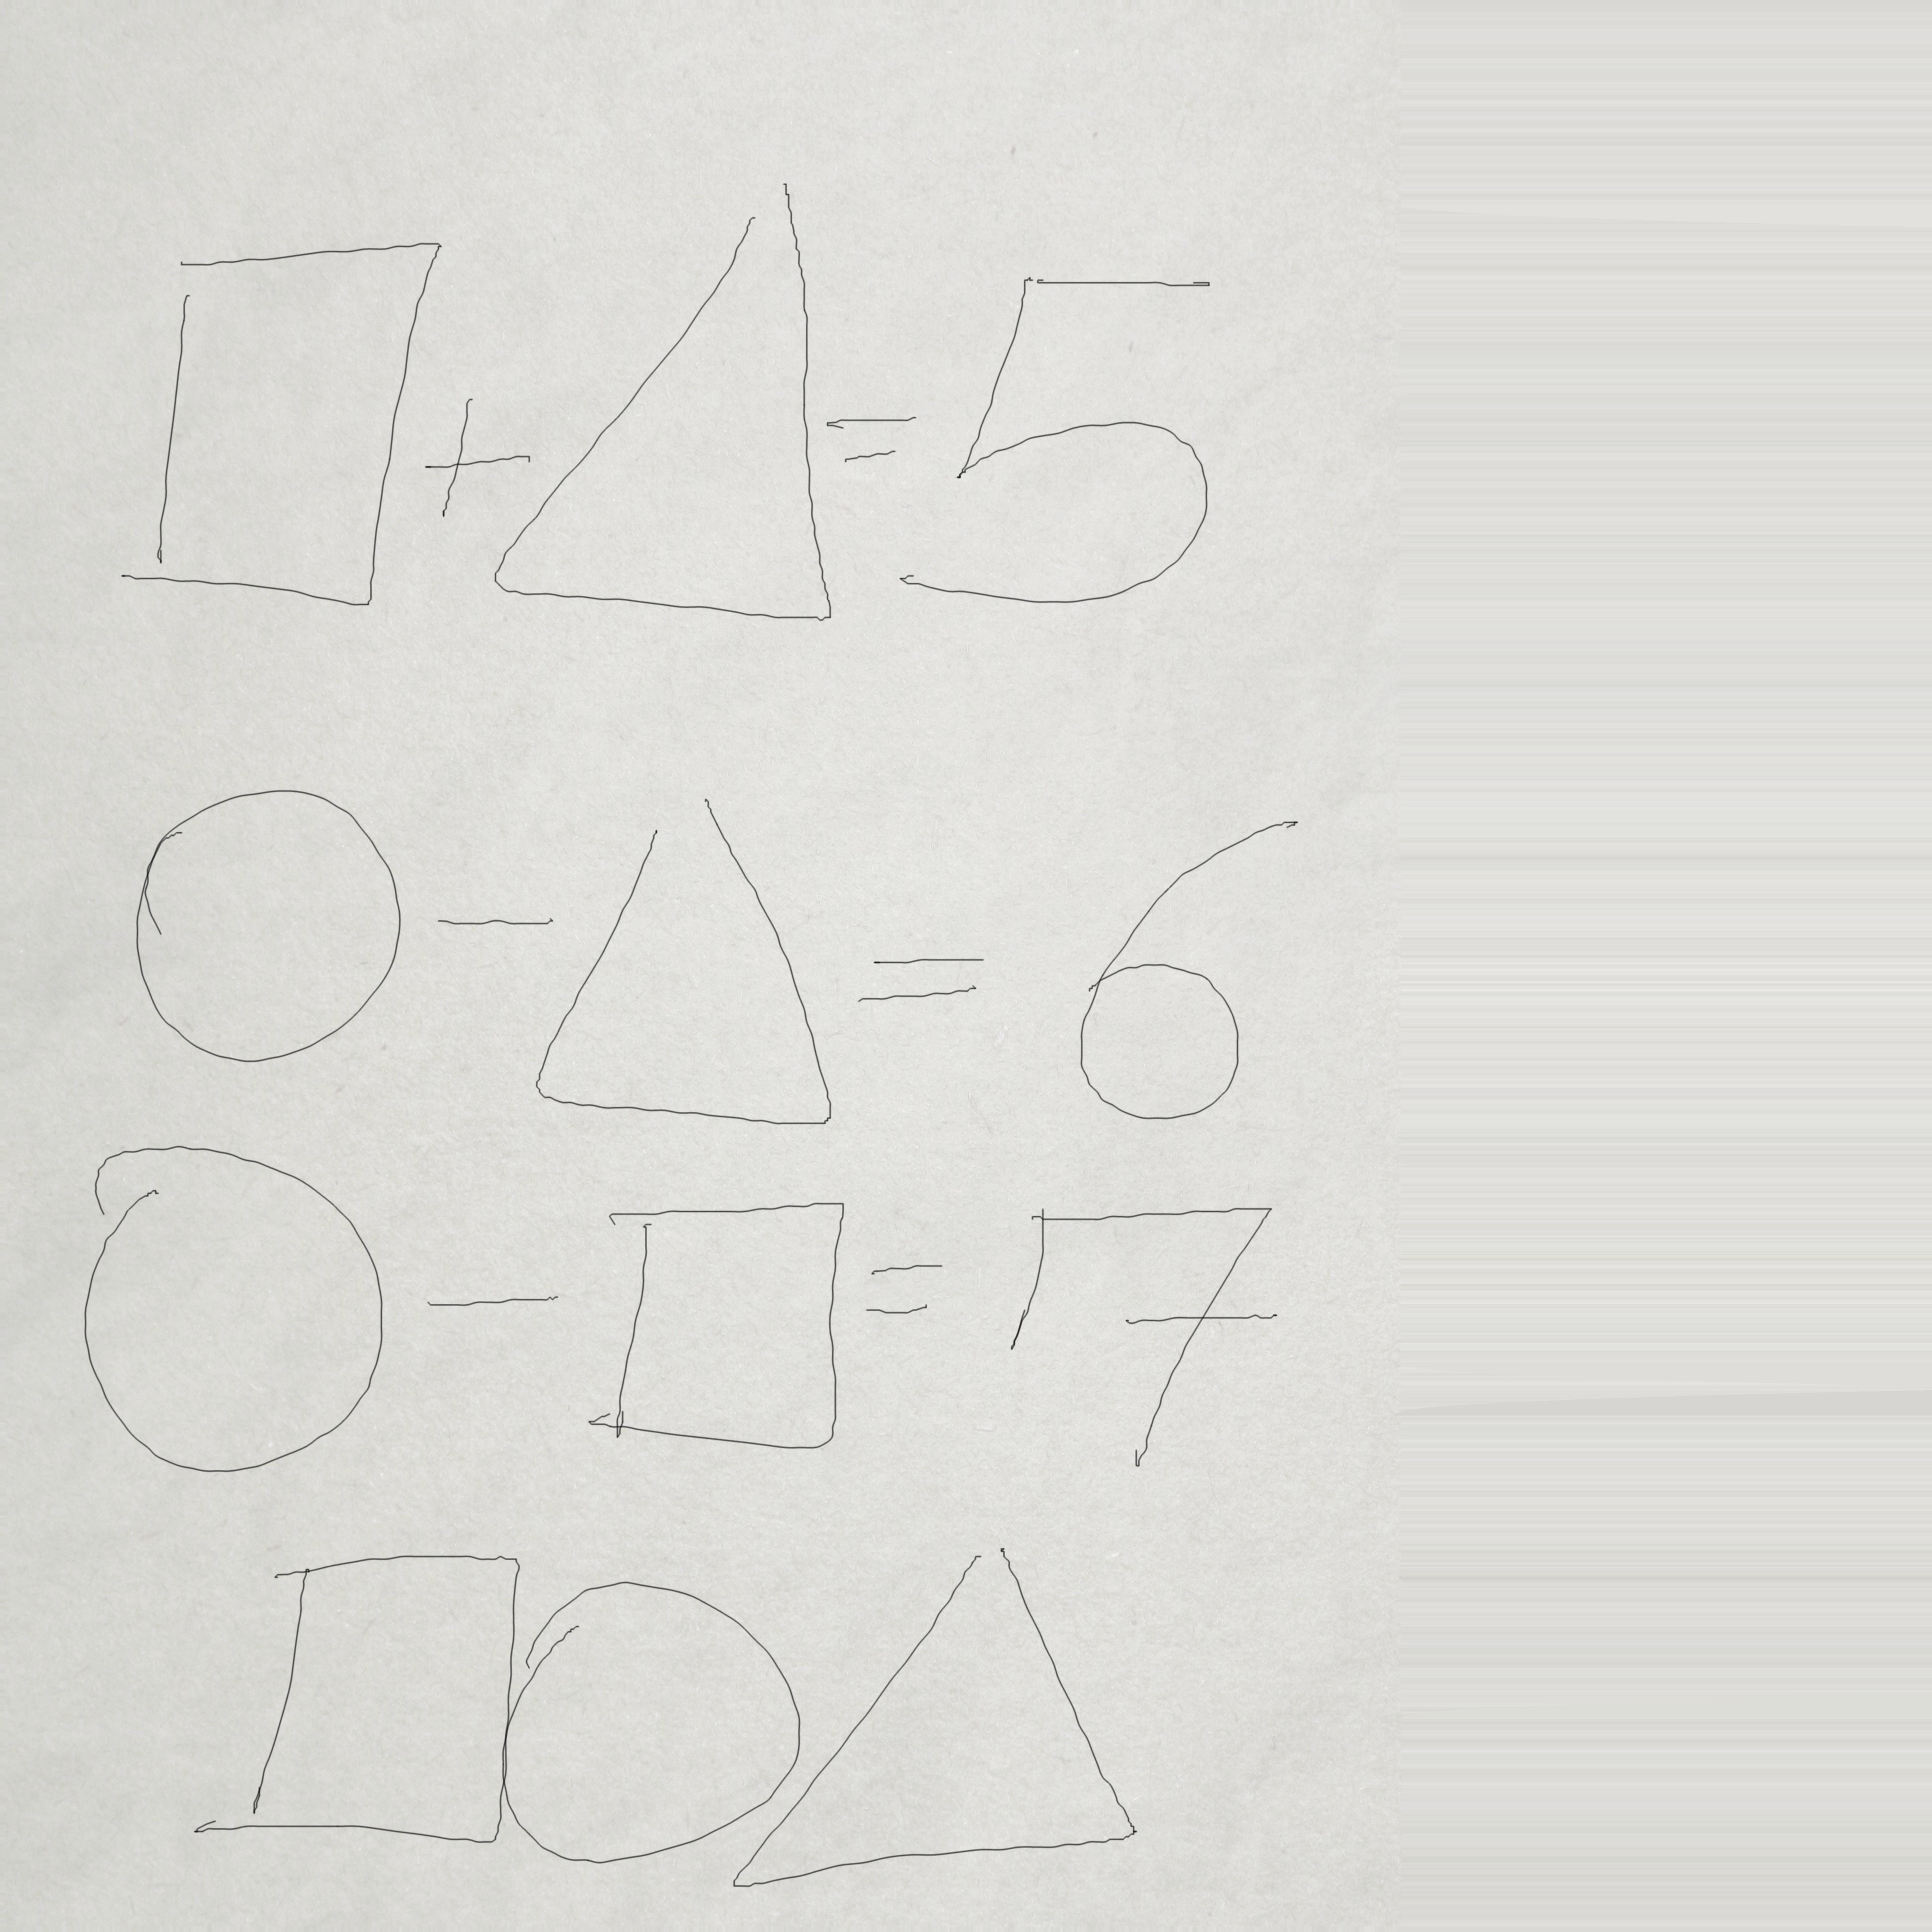 □ + △ = 5
○ - △ = 6
○ - □ = 7
□○△